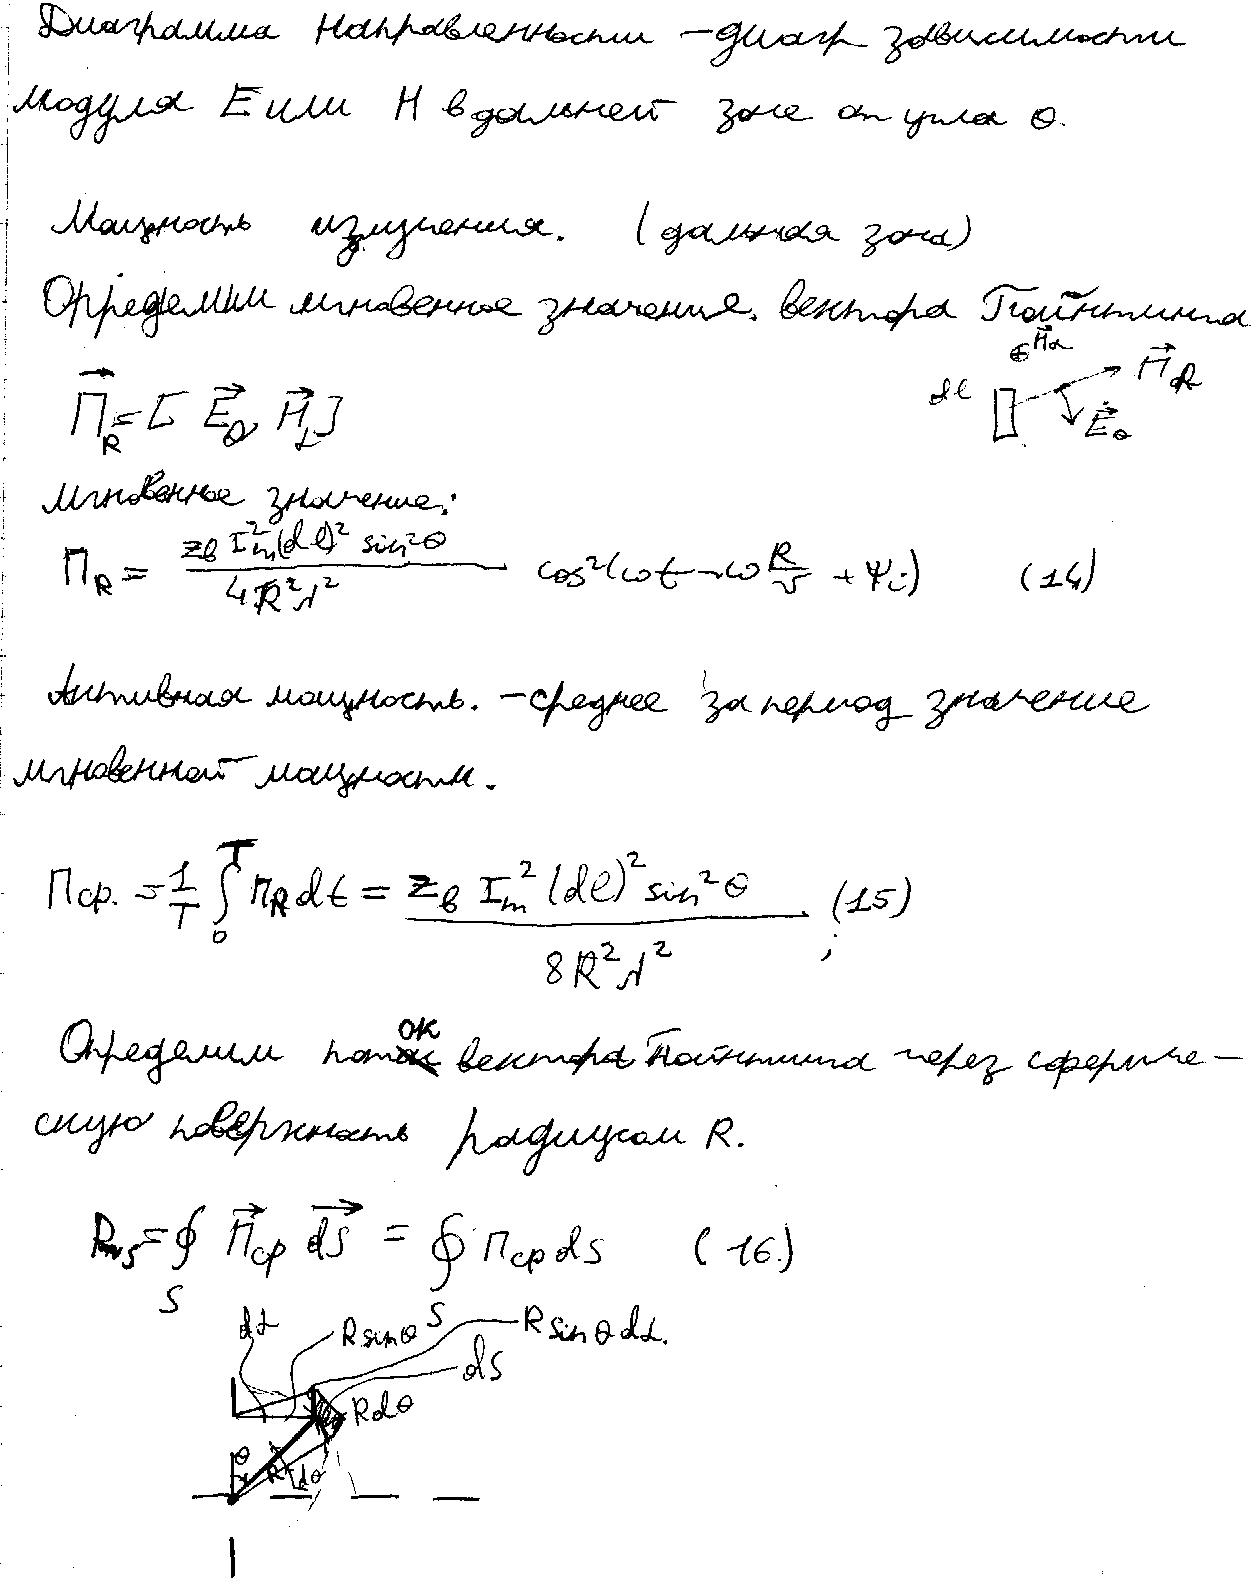 Диаграмма направленности – диагр зависимости
модуля E или H в дальней зоне от угла θ.
Мощность излучения. (дальняя зона)
Определим мгновенное значение. вектора Пойнтинга
H⃗α
dl П⃗R
E⃗θ
П⃗R = [ E⃗θ H⃗α ]
мгновенное значение:
ПR = zв Im²(dl)² sin²θ / 4R²λ² cos²(ωt – ω R/v + Ψi) (14)
Активная мощность. – среднее за период значение
мгновенной мощности.
Пср. = 1/T ∫₀ᵀ ПR dt = zв Im² (dl)² sin²θ / 8R²λ² ; (15)
Определим поток вектора Пойнтинга через сфериче-
скую поверхность радиусом R.
= ∮S П⃗ср dS⃗ = ∮S Пср dS (16)
dα R sinθ R sinθ dα.
dS
R dθ
θ R dθ